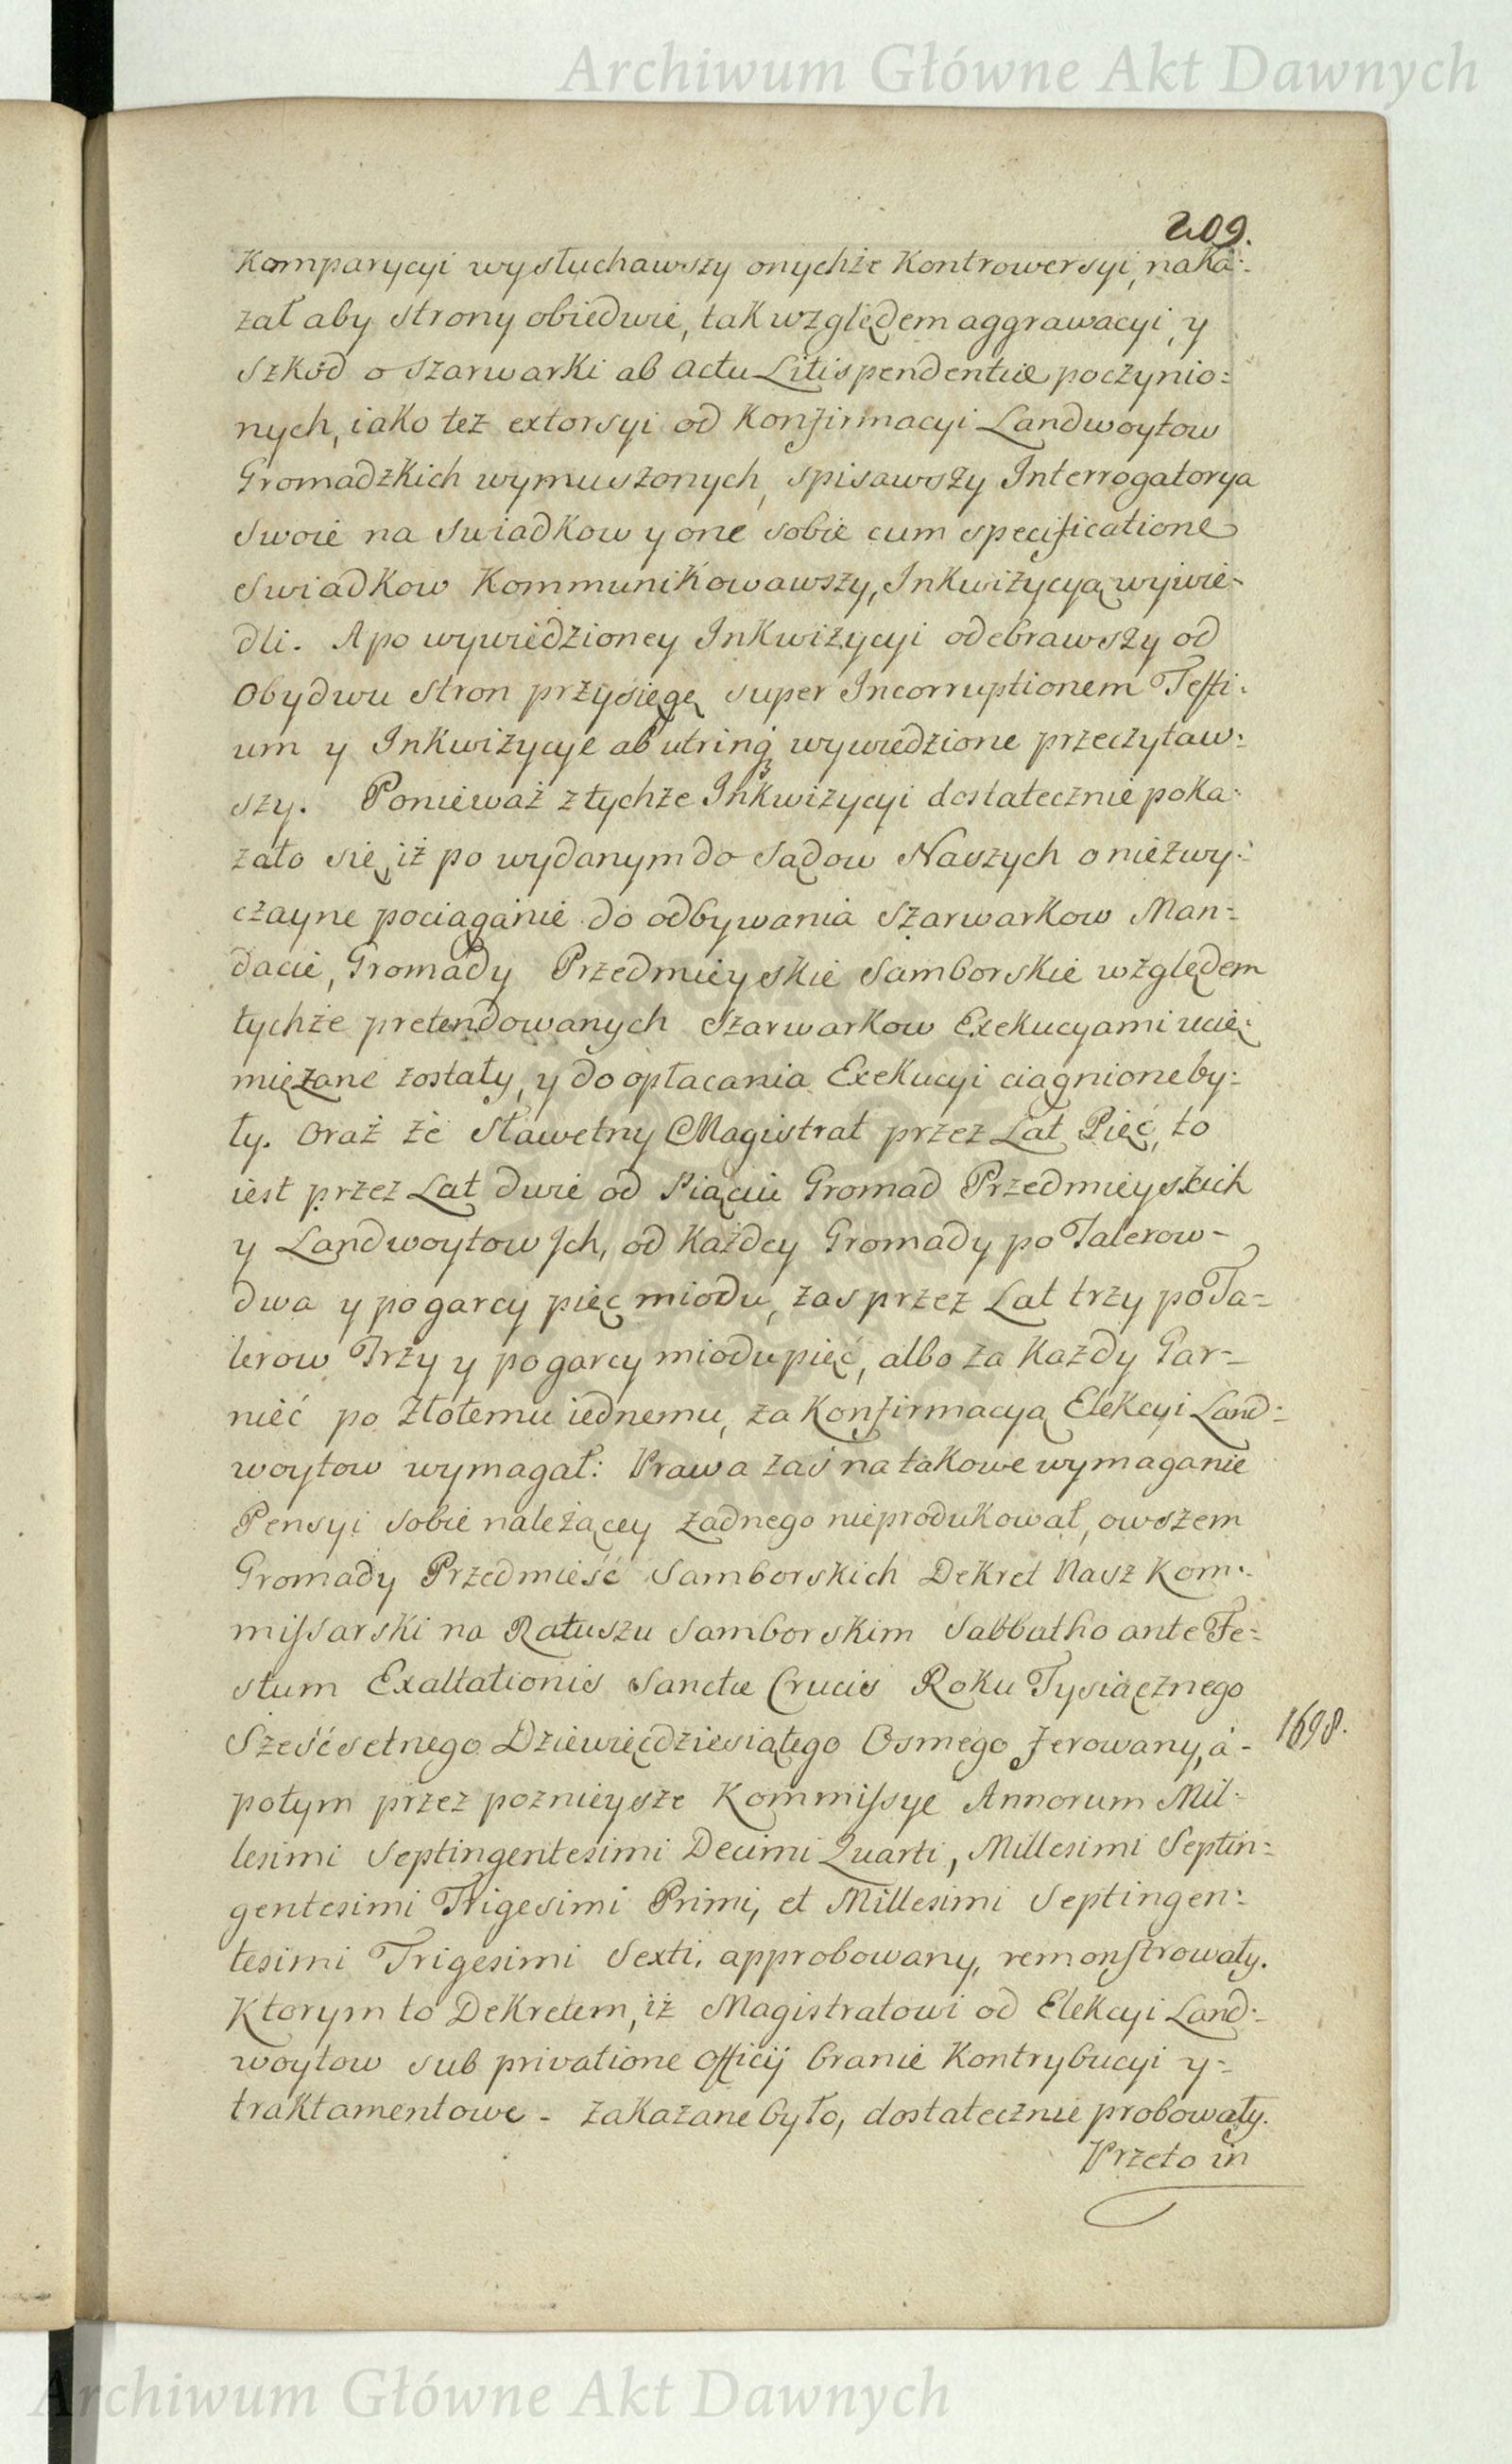 Archiwum Główne Akt Dawnych
209.
Komparycyi wysłuchawszy onychże Kontrowersyi, naka:
zał aby strony obiedwie, tak względem aggrawacyi, y
szkód o szarwarki ab actu Litispendentiæ poczynio:
nych, iako też extorsyi od Konfirmacyi Landwoytow
Gromadzkich wymuszonych, spisawszy Interrogatorya
swoie na swiadkow y one sobie cum specificatione
swiadkow Kommunikowawszy, Inkwizycyą wywie-
dli. A po wywiedzioney Inkwizycyi odebrawszy od
Obydwu stron przysięgę super Incorruptionem Testi:
um y Inkwizycye ab utrinq3 wywiedzione przeczytaw:
szy. Ponieważ z tychże Inkwizycyi dostatecznie poka:
zało się, iż po wydanym do Sądow Naszych o niezwy:
czayne pociąganie do odbywania szarwarkow Man=
dacie, Gromady Przedmieyskie Samborskie względem
tychże pretendowanych szarwarkow Exekucyami ucię:
miężane zostały, y do opłacania Exekucyi ciągnione by:
ły. Oraz że Sławetny Magistrat przez Lat Pięć, to
iest przez Lat dwie od Piąciu Gromad Przedmieyskich
y Landwoytow Ich, od każdey Gromady po Talerow-
dwa y po garcy pięć miodu, zas przez Lat trzy po Ta=
lerow Trzy y po garcy miodu pięć, albo za każdy Gar-
niec po Złotemu iednemu, za Konfirmacyą Elekcyi Land:
woytow wymagał: Prawa zaś na takowe wymaganie
Pensyi sobie należącey żadnego nieprodukował, owszem
Gromady Przedmieść Samborskich Dekret Nasz Kom:
missarski na Ratuszu Samborskim Sabbatho ante Fe:
stum Exaltationis Sanctæ Crucis Roku Tysiącznego
Sześćsetnego Dziewięćdziesiątego Osmego ferowany, á-
1698.
potym przez poznieysze Kommissye Annorum Mil:
lesimi Septingentesimi Decimi Quarti, Millesimi Septin:
gentesimi Trigesimi Primi, et Millesimi Septingen:
tesimi Trigesimi Sexti, approbowany, remonstrowały.
Ktorym to Dekretem, iż Magistratowi od Elekcyi Land:
woytow sub privatione Officij branie Kontrybucyi y-
traktamentowe - zakazane było, dostatecznie probowały.
Przeto in
Archiwum Główne Akt Dawnych